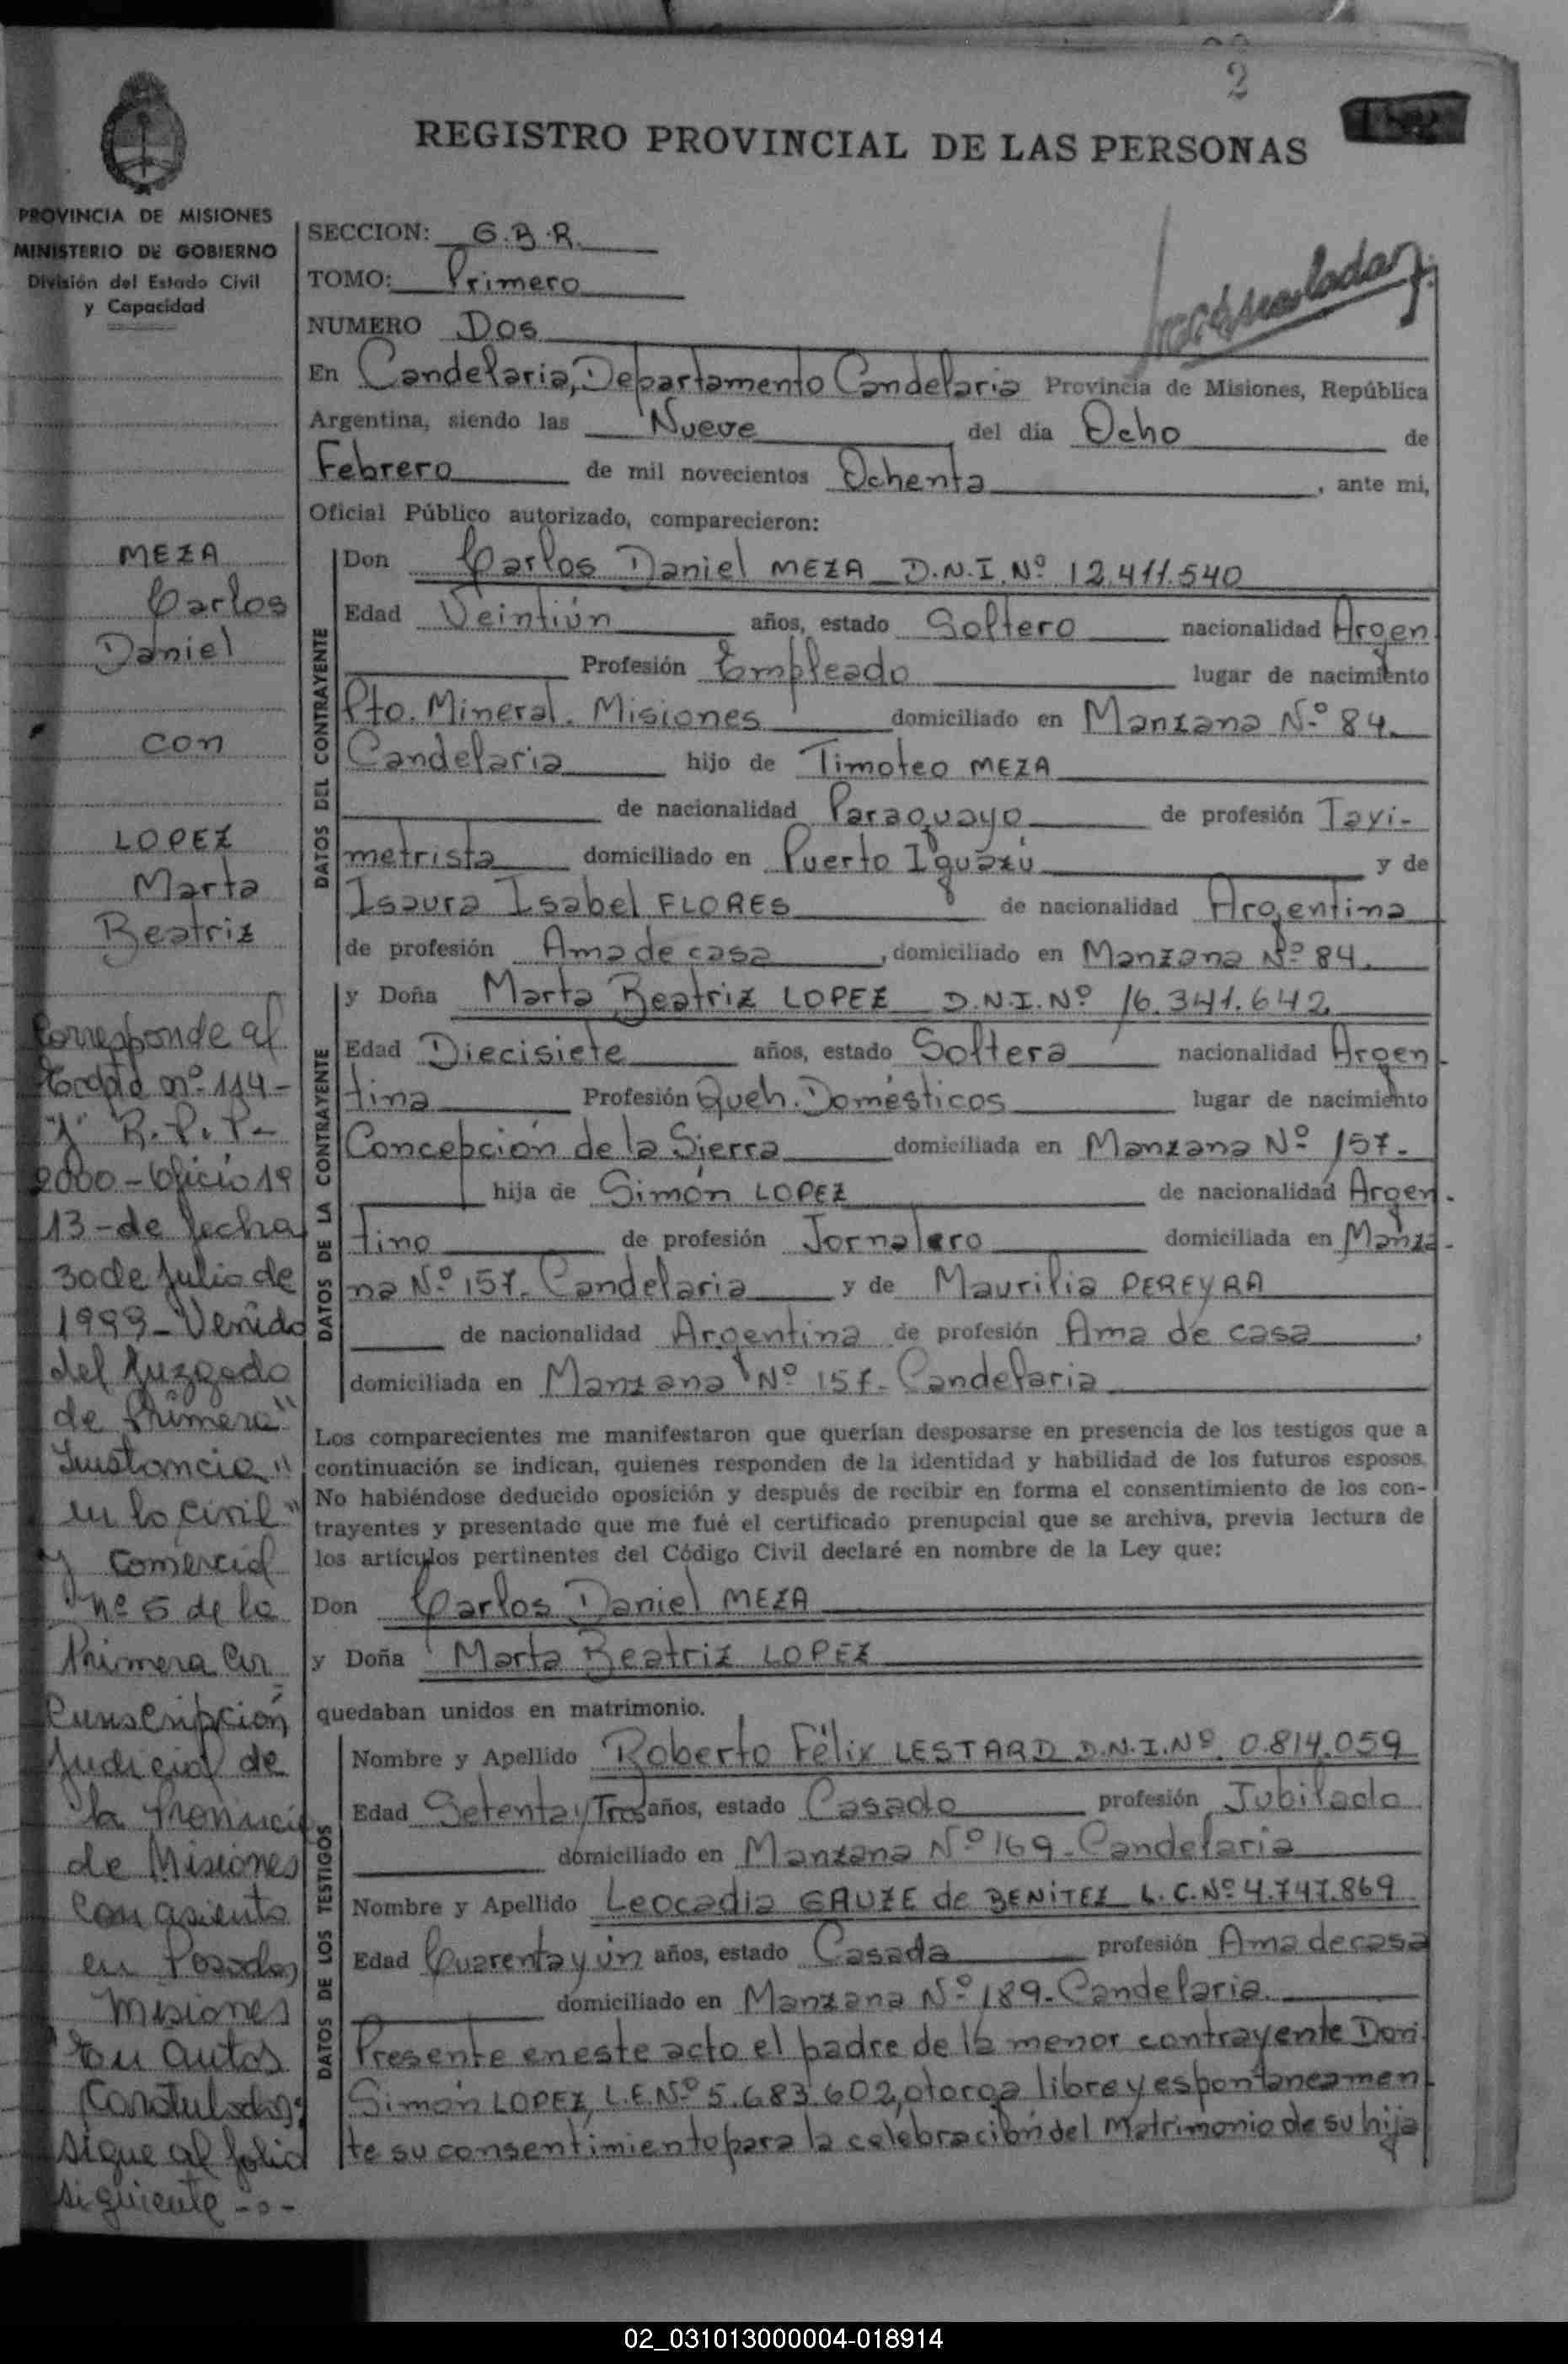 2
REGISTRO PROVINCIAL DE LAS PERSONAS
PROVINCIA DE MISIONES
MINISTERIO DE GOBIERNO
División del Estado Civil
y Capacidad
SECCION: G.B.R.
TOMO: Primero
NUMERO Dos
En Candelaria, Departamento Candelaria Provincia de Misiones, República
Argentina, siendo las Nueve del día Ocho de
Febrero de mil novecientos Ochenta, ante mi,
Oficial Público autorizado, comparecieron:
MEZA
Carlos
Daniel
con
LOPEZ
Marta
Beatriz
Corresponde al
nº 114-
"J" R.P.P-
2000-Oficio 19
13-de fecha
30 de Julio de
1999-Venido
del Juzgado
de Primera"
Instancia"
en lo Civil"
y Comercial
nº 5 de la
Primera Cir
cunscripción
Judicial de
la Provincia
de Misiones
con asiento
en Posadas
Misiones
En autos
Caratulados:
sigue al folio
siguiente -o-
DATOS DEL CONTRAYENTE
Don Carlos Daniel MEZA D.N.I.Nº 12.411.540
Edad Veintiún años, estado Soltero nacionalidad Argen
Profesión Empleado lugar de nacimiento
Pto. Mineral. Misiones domiciliado en Manzana Nº 84.
Candelaria hijo de Timoteo MEZA
de nacionalidad Paraguayo de profesión Taxi-
metrista domiciliado en Puerto Iguazú y de
Isaura Isabel FLORES de nacionalidad Argentina
de profesión Ama de casa, domiciliado en Manzana Nº 84.
DATOS DE LA CONTRAYENTE
y Doña Marta Beatriz LOPEZ D.N.I.Nº 16.341.642
Edad Diecisiete años, estado Soltera nacionalidad Argen-
tina Profesión Queh. Domésticos lugar de nacimiento
Concepción de la Sierra domiciliada en Manzana Nº 157-
hija de Simón LOPEZ de nacionalidad Argen-
tino de profesión Jornalero domiciliada en Manza-
na Nº 157- Candelaria y de Maurilia PEREYRA
de nacionalidad Argentina de profesión Ama de casa,
domiciliada en Manzana Nº 157- Candelaria
Los comparecientes me manifestaron que querían desposarse en presencia de los testigos que a
continuación se indican, quienes responden de la identidad y habilidad de los futuros esposos.
No habiéndose deducido oposición y después de recibir en forma el consentimiento de los con-
trayentes y presentado que me fué el certificado prenupcial que se archiva, previa lectura de
los artículos pertinentes del Código Civil declaré en nombre de la Ley que:
Don Carlos Daniel MEZA
y Doña Marta Beatriz LOPEZ
quedaban unidos en matrimonio.
DATOS DE LOS TESTIGOS
Nombre y Apellido Roberto Félix LESTARD D.N.I.Nº 0.814.059
Edad Setenta y Tres años, estado Casado profesión Jubilado
domiciliado en Manzana Nº 169- Candelaria
Nombre y Apellido Leocadia GAUZE de BENITEZ L.C.Nº 4.747.869
Edad Cuarenta y ún años, estado Casada profesión Ama de casa
domiciliado en Manzana Nº 189- Candelaria.
Presente en este acto el padre de la menor contrayente Don
Simón LOPEZ, L.E.Nº 5.683.602, otorga libre y espontaneamen
te su consentimiento para la celebración del Matrimonio de su hija
02_031013000004-018914